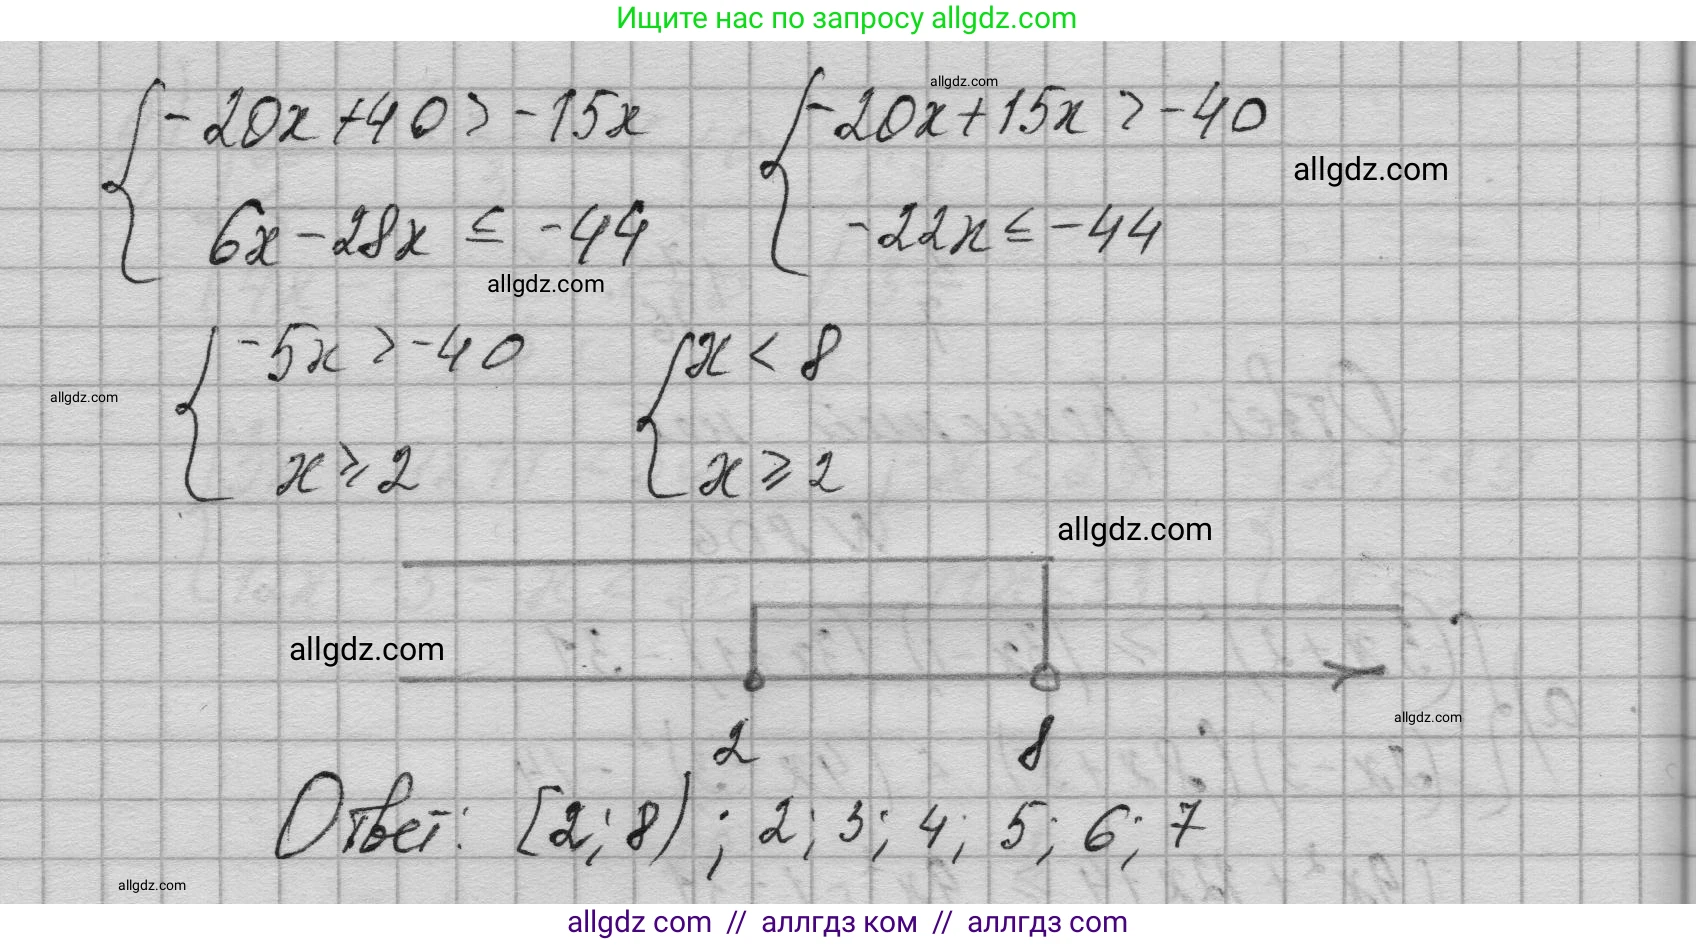 Ищите нас по запросу allgdz.com
allgdz.com
-20x+40>-15x -20x+15x>-40
allgdz.com
6x-28x≤-44 -22x≤-44
allgdz.com
-5x>-40 x<8
allgdz.com
x≥2 x≥2
allgdz.com
allgdz.com
allgdz.com
2 8
Ответ: [2; 8) ; 2; 3; 4; 5; 6; 7
allgdz.com
allgdz com // аллгдз ком // аллгдз com